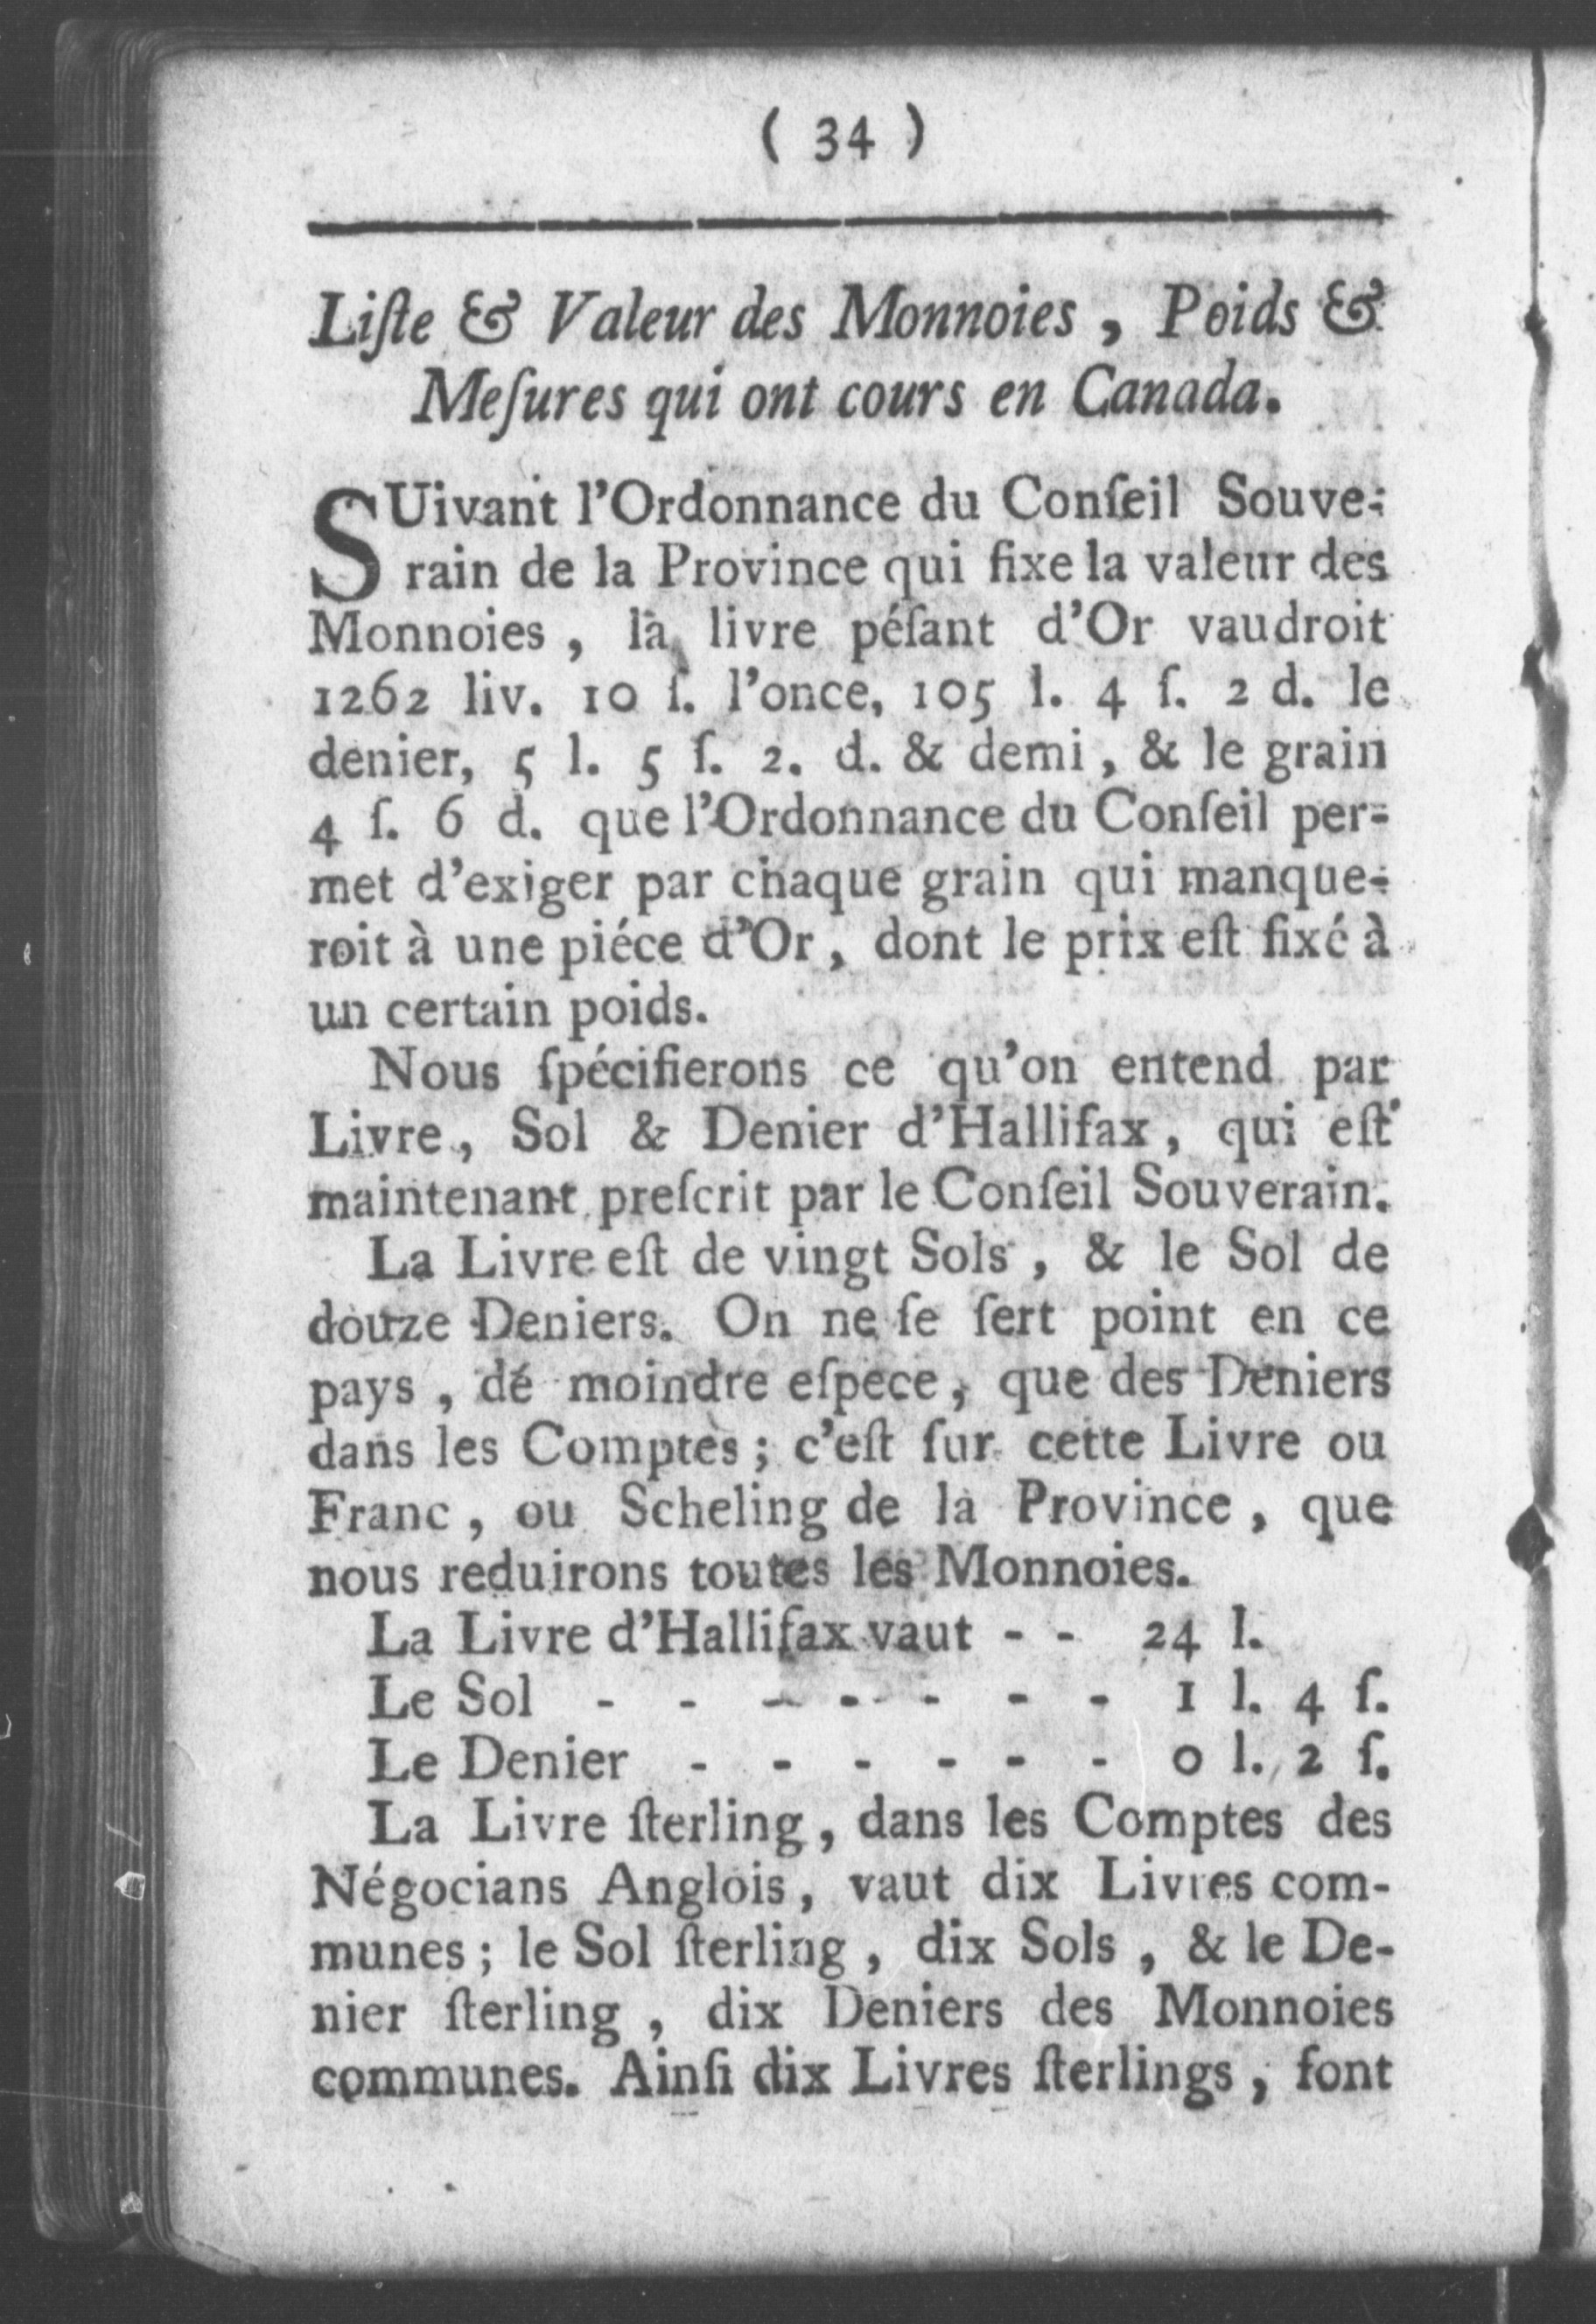 ( 34 )
Liſte & Valeur des Monnoies, Poids &
Meſures qui ont cours en Canada.
SUivant l'Ordonnance du Conſeil Souve-
rain de la Province qui fixe la valeur des
Monnoies, la livre péſant d'Or vaudroit
1262 liv. 10 ſ. l'once, 105 l. 4 ſ. 2 d. le
denier, 5 l. 5 ſ. 2. d. & demi, & le grain
4 ſ. 6 d. que l'Ordonnance du Conſeil per-
met d'exiger par chaque grain qui manque-
roit à une piéce d'Or, dont le prix eſt fixé à
un certain poids.
Nous ſpécifierons ce qu'on entend par
Livre, Sol & Denier d'Hallifax, qui eſt
maintenant preſcrit par le Conſeil Souverain.
La Livre eſt de vingt Sols, & le Sol de
douze Deniers. On ne ſe ſert point en ce
pays, de moindre eſpece, que des Deniers
dans les Comptes; c'eſt ſur cette Livre ou
Franc, ou Scheling de la Province, que
nous reduirons toutes les Monnoies.
La Livre d'Hallifax vaut - - 24 l.
Le Sol - - - - - - - 1 l. 4 ſ.
Le Denier - - - - - - 0 l. 2 ſ.
La Livre ſterling, dans les Comptes des
Négocians Anglois, vaut dix Livres com-
munes; le Sol ſterling, dix Sols, & le De-
nier ſterling, dix Deniers des Monnoies
communes. Ainſi dix Livres ſterlings, font